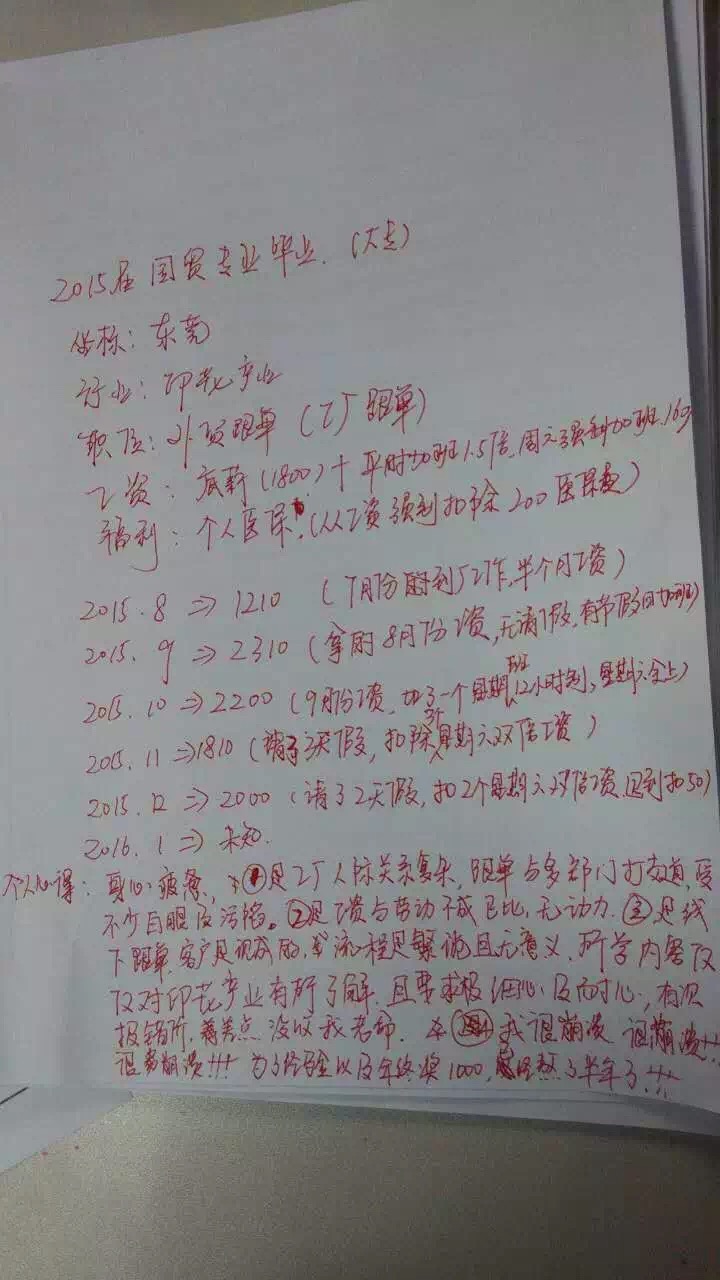 2015届国贸专业毕业.(大专)
坐标:东莞
行业:印花产业
职位:外贸跟单(工厂跟单)
工资:底薪(1800)+平时加班1.5倍.周六强制加班.160
福利:个人医保.(从工资强制扣除200医保费)
2015.8⇒1210(7月份时到厂工作,半个月工资)
2015.9⇒2310(拿的8月份工资,无请假,有节假日加班)
2015.10⇒2200(9月份工资,加了一个星期班,12小时制,星期六全上)
2015.11⇒1810(请了3天假,扣除3个星期六双倍工资)
2015.12⇒2000(请了2天假,扣2个星期六双倍工资,迟到扣50)
2016.1⇒未知.
个人心得:身心疲惫,*①是工厂人际关系复杂,跟单与多部门打交道,受
不少白眼及污陷。②是工资与劳动不成正比,无动力.③是线
下跟单,客户是现成的,流程是繁琐且无意义,所学内容仅
仅对印花产业有所了解,且要求极细心及耐心,有次
报错价,差点没收我老命.*我很崩溃 很崩溃!!!
很崩溃!!!为了经验以及年终奖1000,熬了半年了!!!